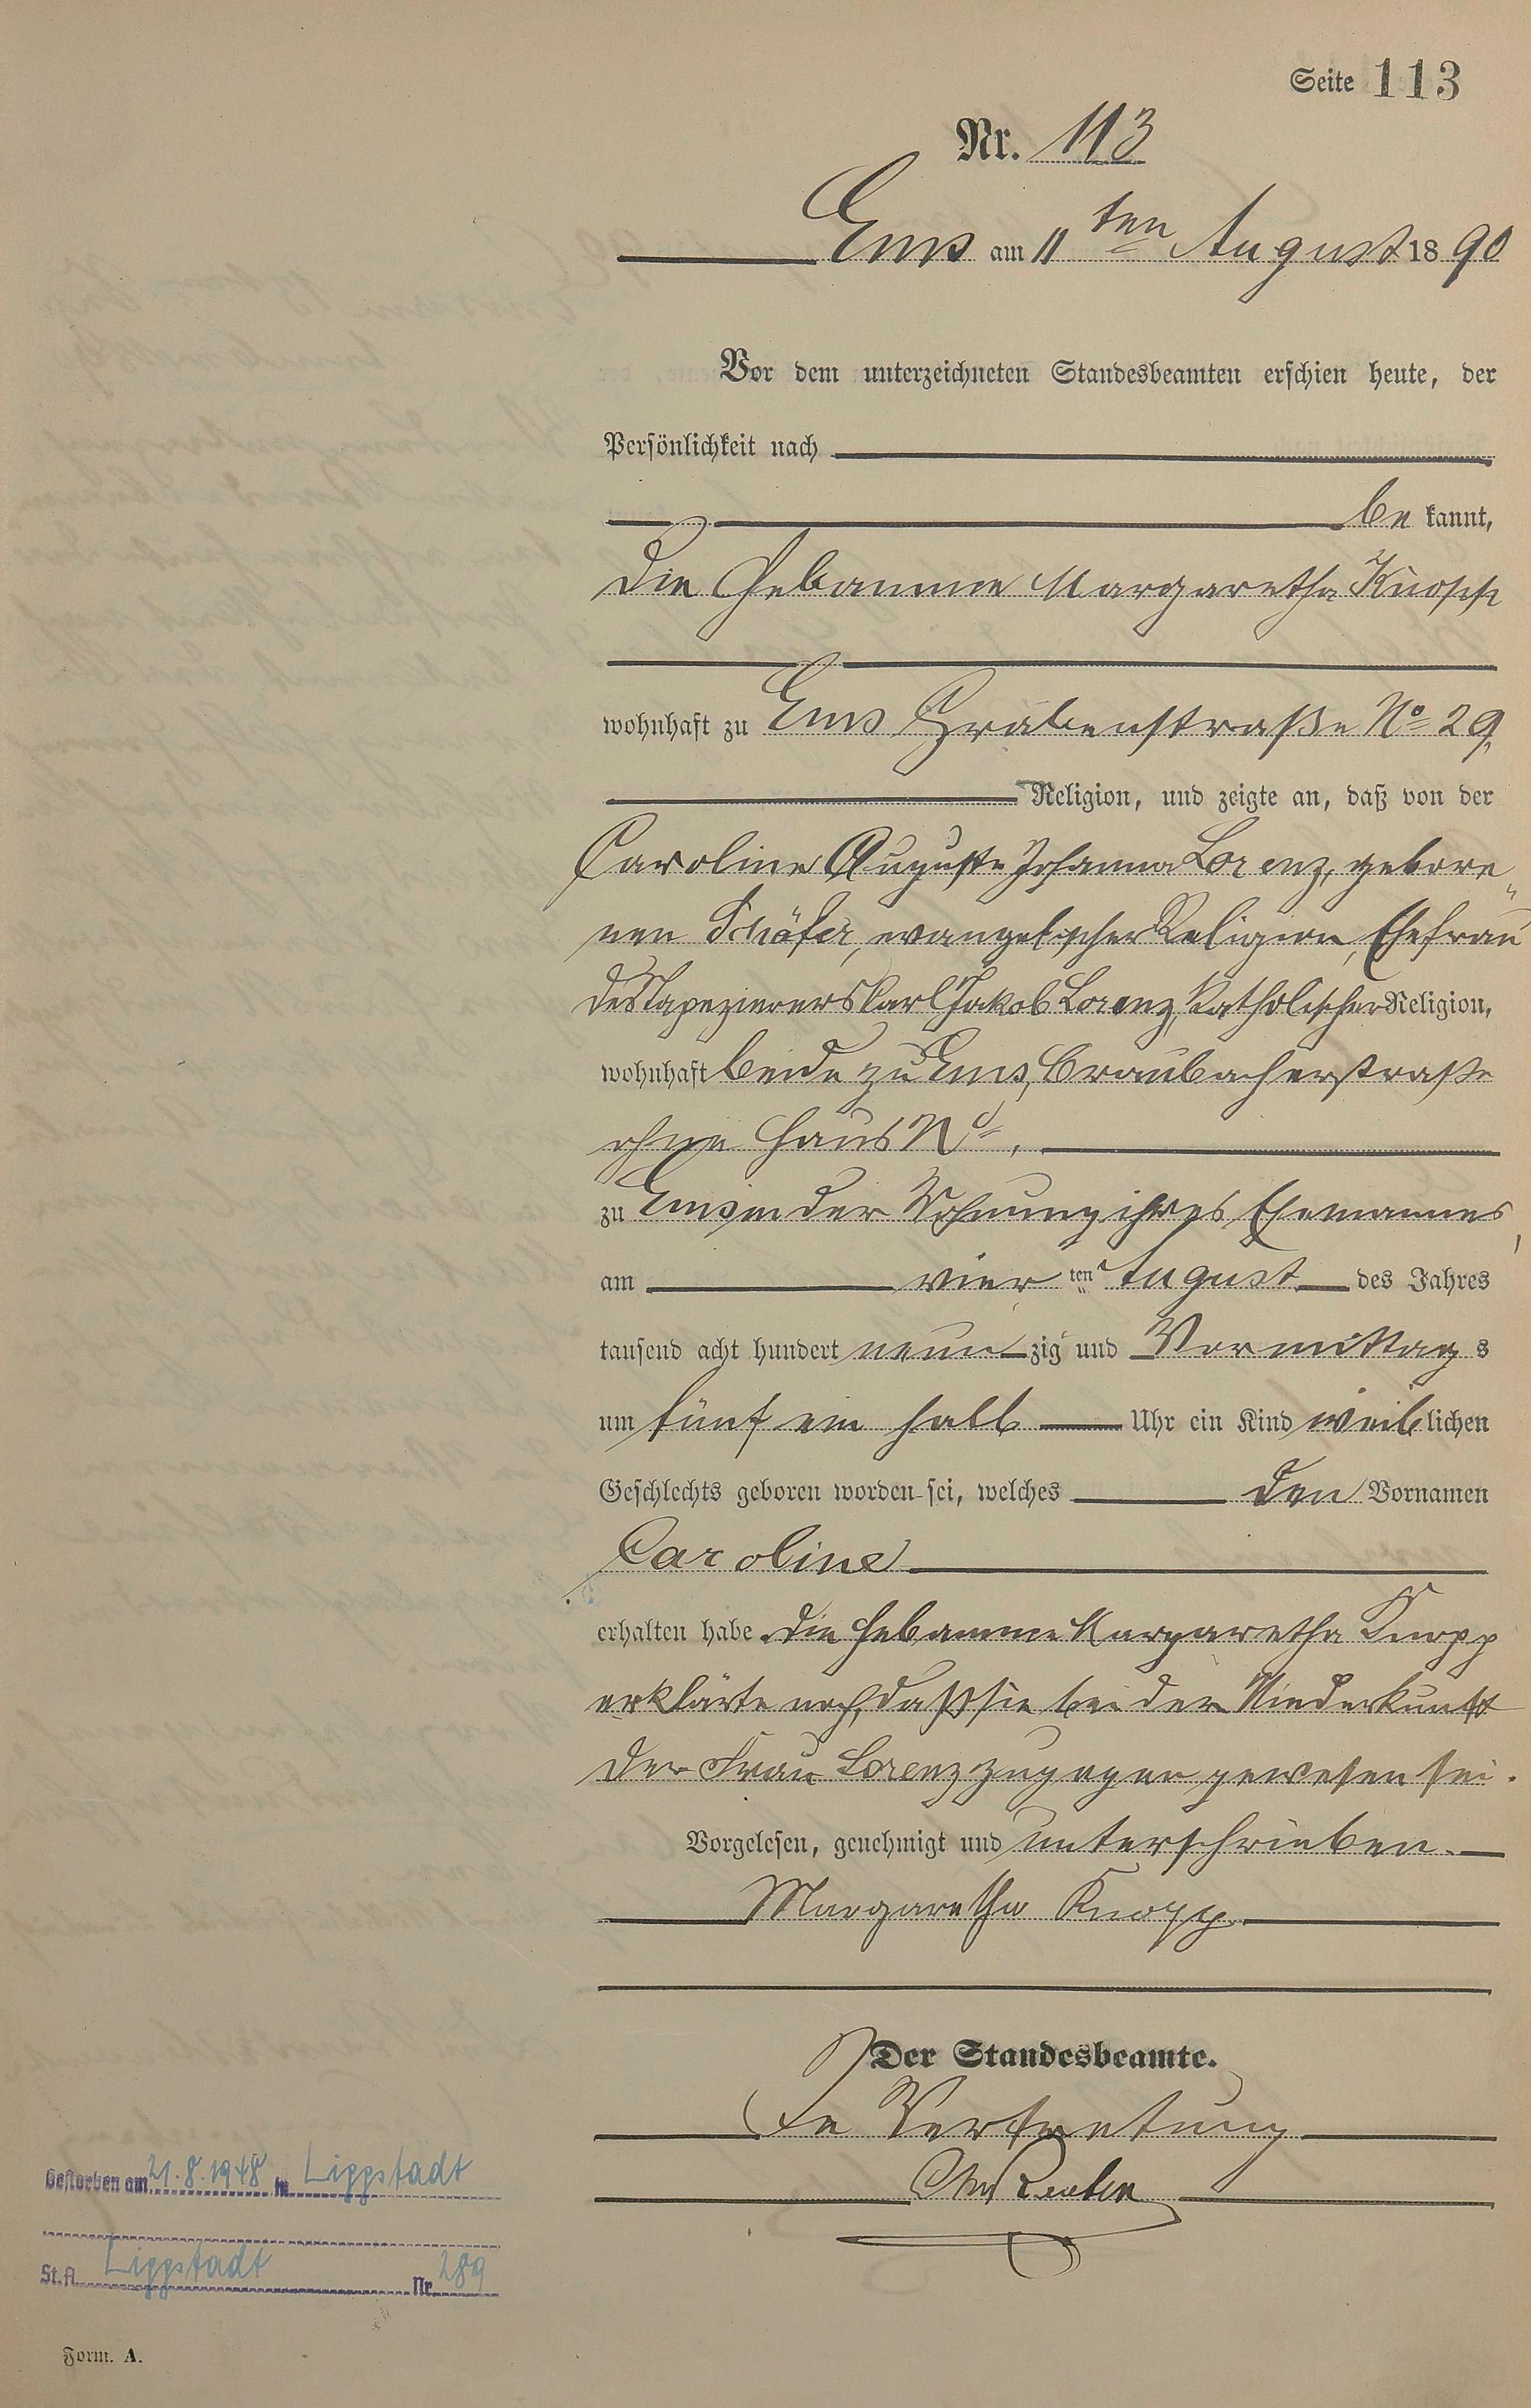 Seite 113
Nr. 113
Ems am 11ten August 1890
Vor dem unterzeichneten Standesbeamten erschien heute, der
Persönlichkeit nach
be kannt,
die Hebamme Margaretha Knopp
wohnhaft zu Ems Grabenstraße No 29,
Religion, und zeigte an, daß von der
Caroline Auguste Johanna Lorenz, gebore"
nen Schäfer, evangelischer Religion, Ehefrau
des Tapezierers Carl Jakob Lorenz, katholischer Religion,
wohnhaft beide zu Ems, Braubacherstraße
ohne Haus No,
zu Ems in der Wohnung ihres Ehemannes,
am vier ten August des Jahres
tausend acht hundert neun zig und Vormittag s
um fünf ein halb Uhr ein Kind weiblichen
Geschlechts geboren worden sei, welches den Vornamen
Caroline
erhalten habe. Die Hebamme Margaretha Knopp
erklärte noch, daß sie bei der Niederkunft
der Frau Lorenz zugegen gewesen sei.
Vorgelesen, genehmigt und unterschrieben.
Margaretha Knopp
Der Standesbeamte.
In Vertretung
Gestorben am 21.8.1948 in Lippstadt
St.A. Lippstadt Nr. 289
Form. A.